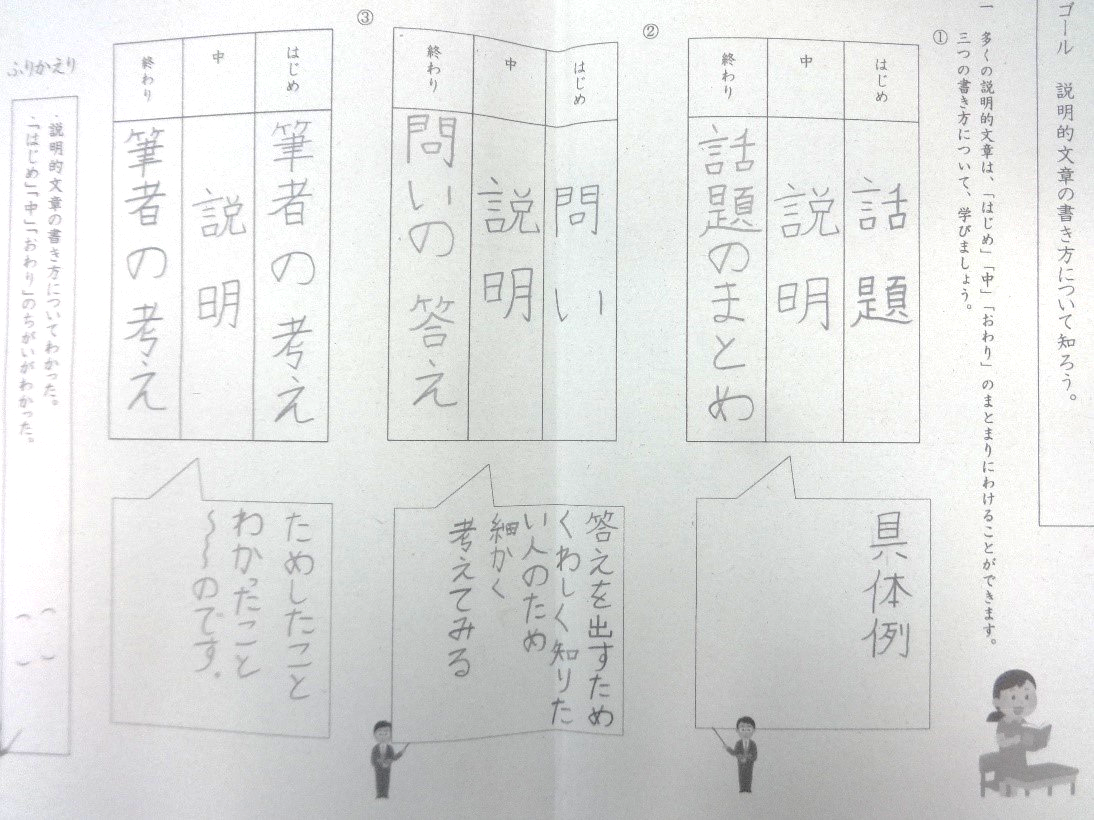 ゴール 説明的文章の書き方について知ろう。
一 多くの説明的文章は、「はじめ」「中」「おわり」のまとまりにわけることができます。
三つの書き方について、学びましょう。
①
はじめ
話題
中
説明
終わり
話題のまとめ
具体例
②
はじめ
問い
中
説明
終わり
問いの答え
答えを出すため
くわしく知りた
い人のため
細かく
考えてみる
③
はじめ
筆者の考え
中
説明
終わり
筆者の考え
ためしたこと
わかったこと
〜〜のです。
ふりかえり
・説明的文章の書き方についてわかった。
・「はじめ」「中」「おわり」のちがいがわかった。
( )
( )